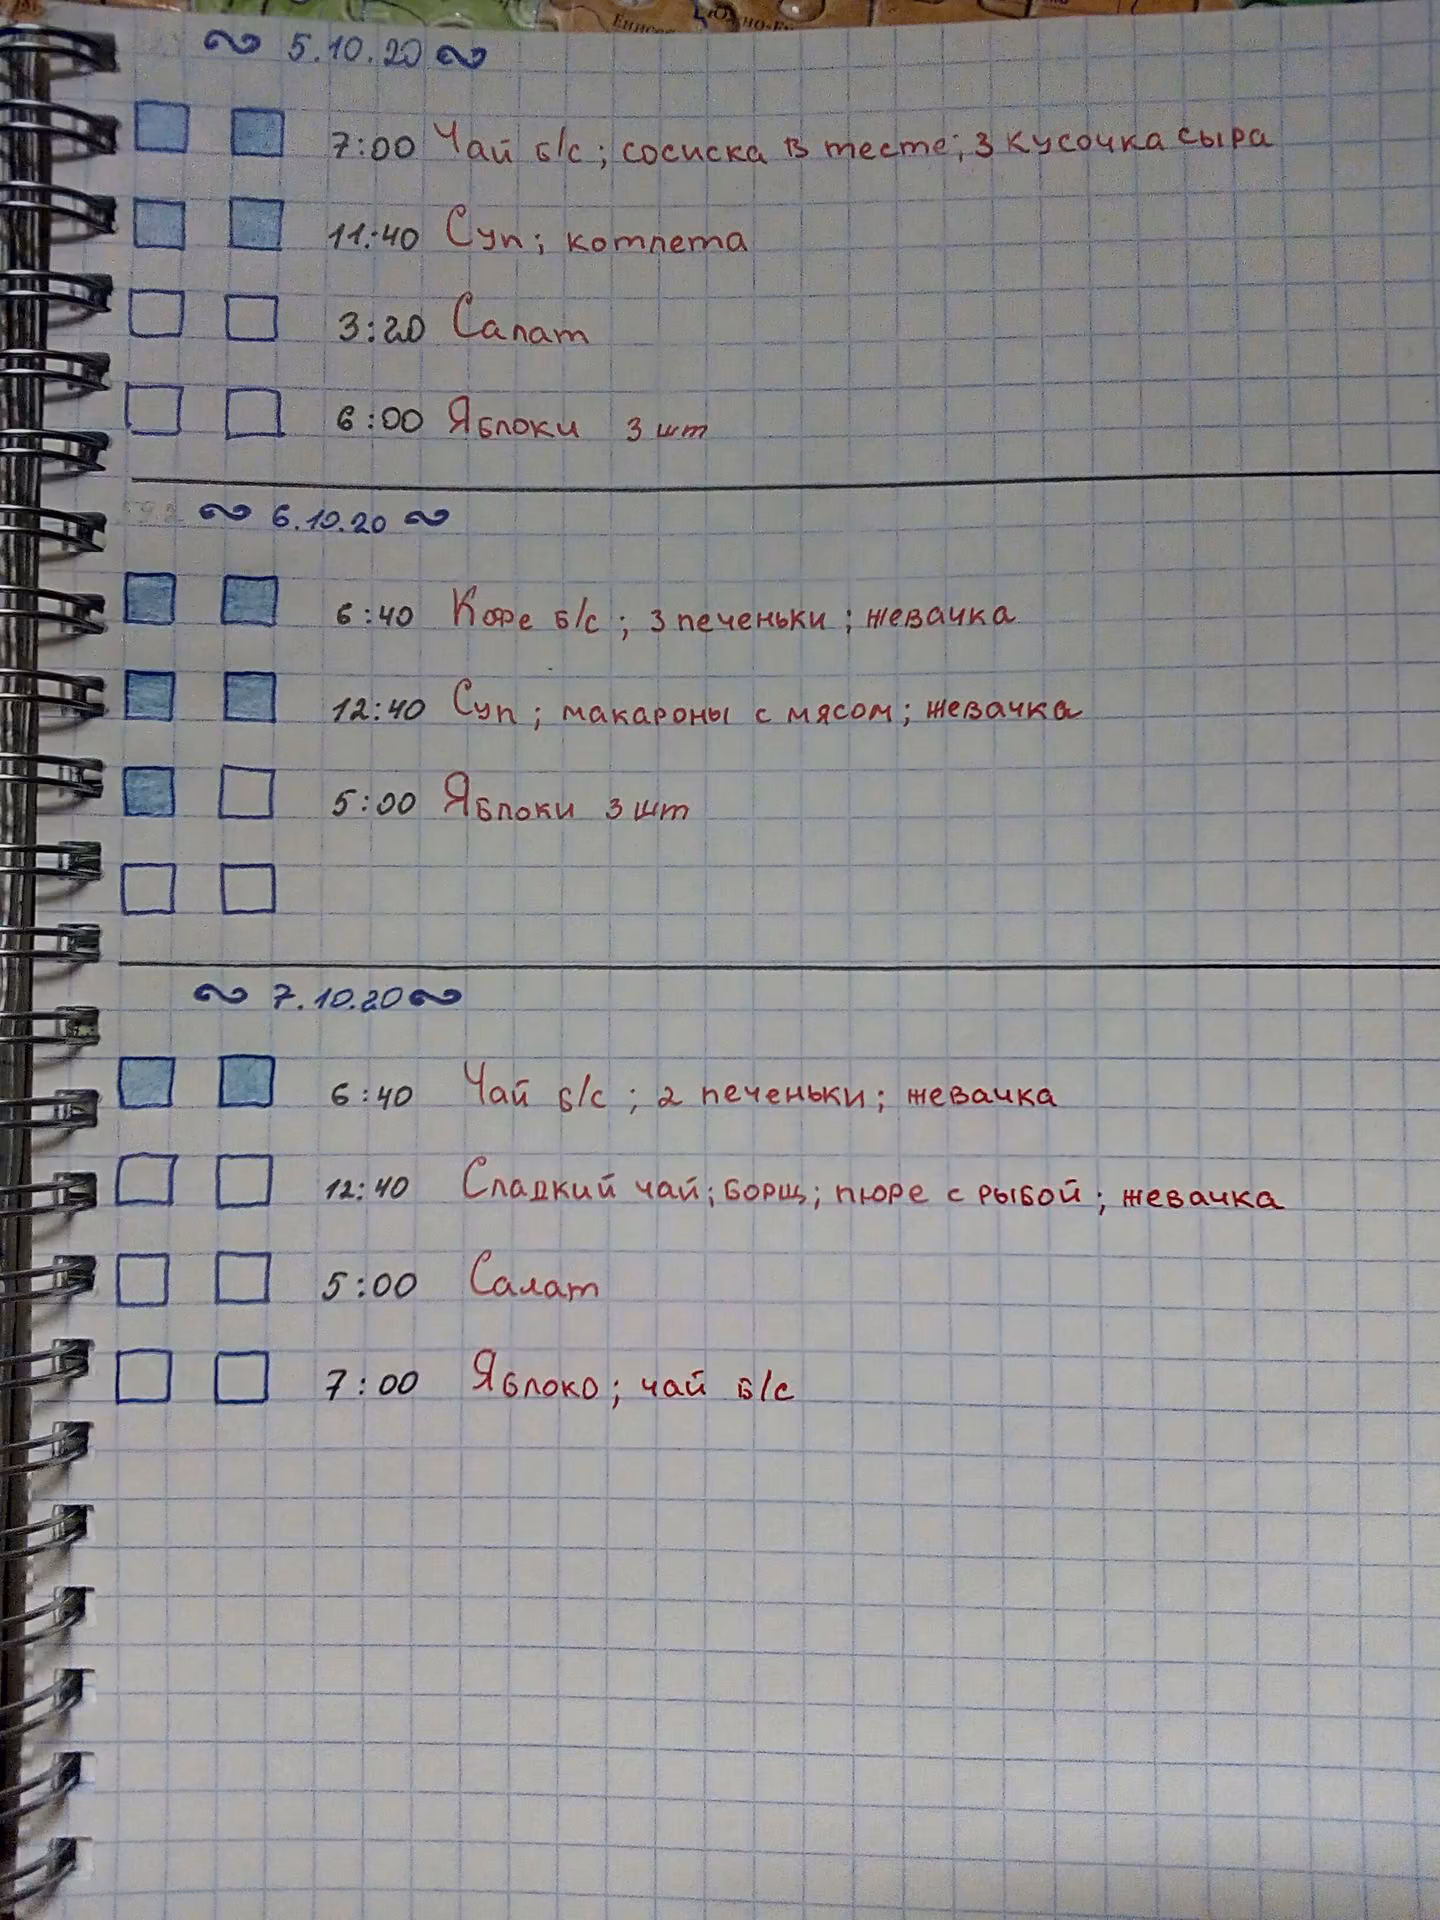 ~ 5.10.20 ~
7:00 Чай б/с; сосиска в тесте; 3 кусочка сыра
11:40 Суп; котлета
3:20 Салат
6:00 Яблоки 3 шт
~ 6.10.20 ~
6:40 Кофе б/с; 3 печеньки; жевачка
12:40 Суп; макароны с мясом; жевачка
5:00 Яблоки 3 шт
~ 7.10.20 ~
6:40 Чай б/с; 2 печеньки; жевачка
12:40 Сладкий чай; борщ; пюре с рыбой; жевачка
5:00 Салат
7:00 Яблоко; чай б/с